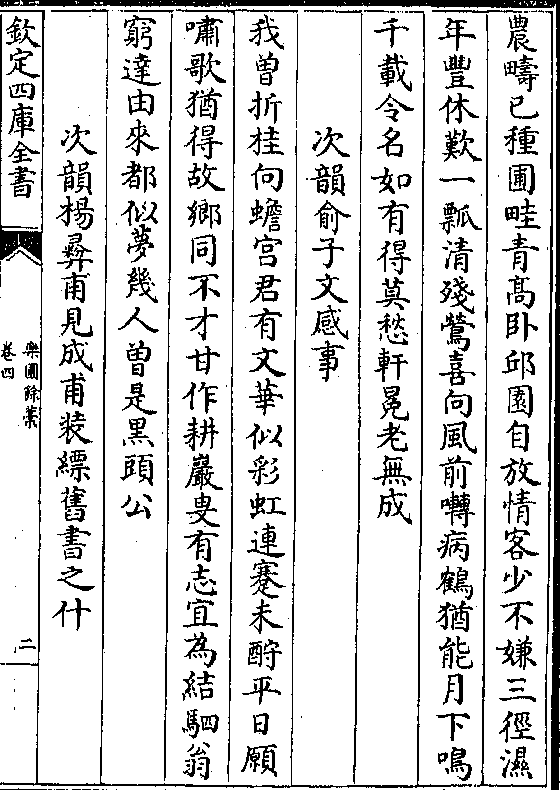 農疇已種圃畦青高卧邱園自放情客少不嫌三徑濕
年豐休歎一瓢清殘鶯喜向風前囀病鶴猶能月下鳴
千載令名如有得莫愁軒冕老無成
次韻俞子文感事
我曽折桂向蟾宫君有文華似彩虹連蹇未酧平日願
嘯歌猶得故鄉同不才甘作耕巖叟有志宜為結駟翁
窮達由來都似夢幾人曽是黒頭公
次韻楊彛甫見成甫装縹舊書之什
欽定四庫全書
樂圃餘藁
卷四
二